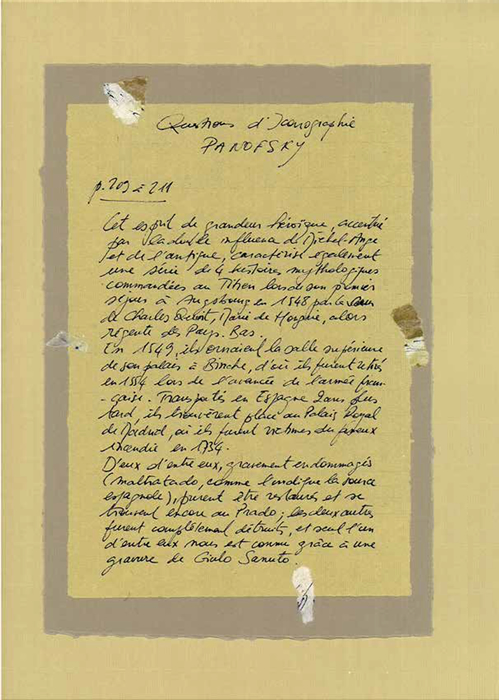 Questions d'Iconographie
PANOFSKY
p. 209 à 211
Cet esprit de grandeur héroïque, accentué
par la double influence de Michel-Ange
et de l'antique, caractérise également
une série de 4 histoires mythologiques
commandées au Titien lors de son premier
séjour à Augsbourg en 1548 par la sœur
de Charles Quint, Marie de Hongrie, alors
régente des Pays-Bas.
En 1549, ils ornaient la salle supérieure
de son palais à Binche, d'où ils furent retirés
en 1554 lors de l'avancée de l'armée fran-
-çaise. Transportés en Espagne 2 ans plus
tard, ils trouvèrent place au Palais Royal
de Madrid, où ils furent victimes du fameux
incendie en 1734.
D'eux d'entre eux, gravement endommagés
(maltratado, comme l'indique la source
espagnole), purent être restaurés et se
trouvent encore au Prado ; les deux autres
furent complètement détruits, et seul l'un
d'entre eux nous est connu grâce à une
gravure de Giulo Sanuto.